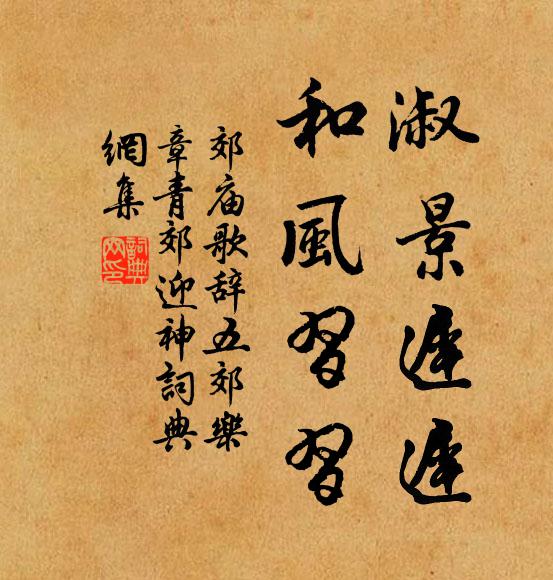 淑景遲遲
和風習習
郊庙歌辞五郊樂
章青郊迎神詞典
網集
詞典
网印